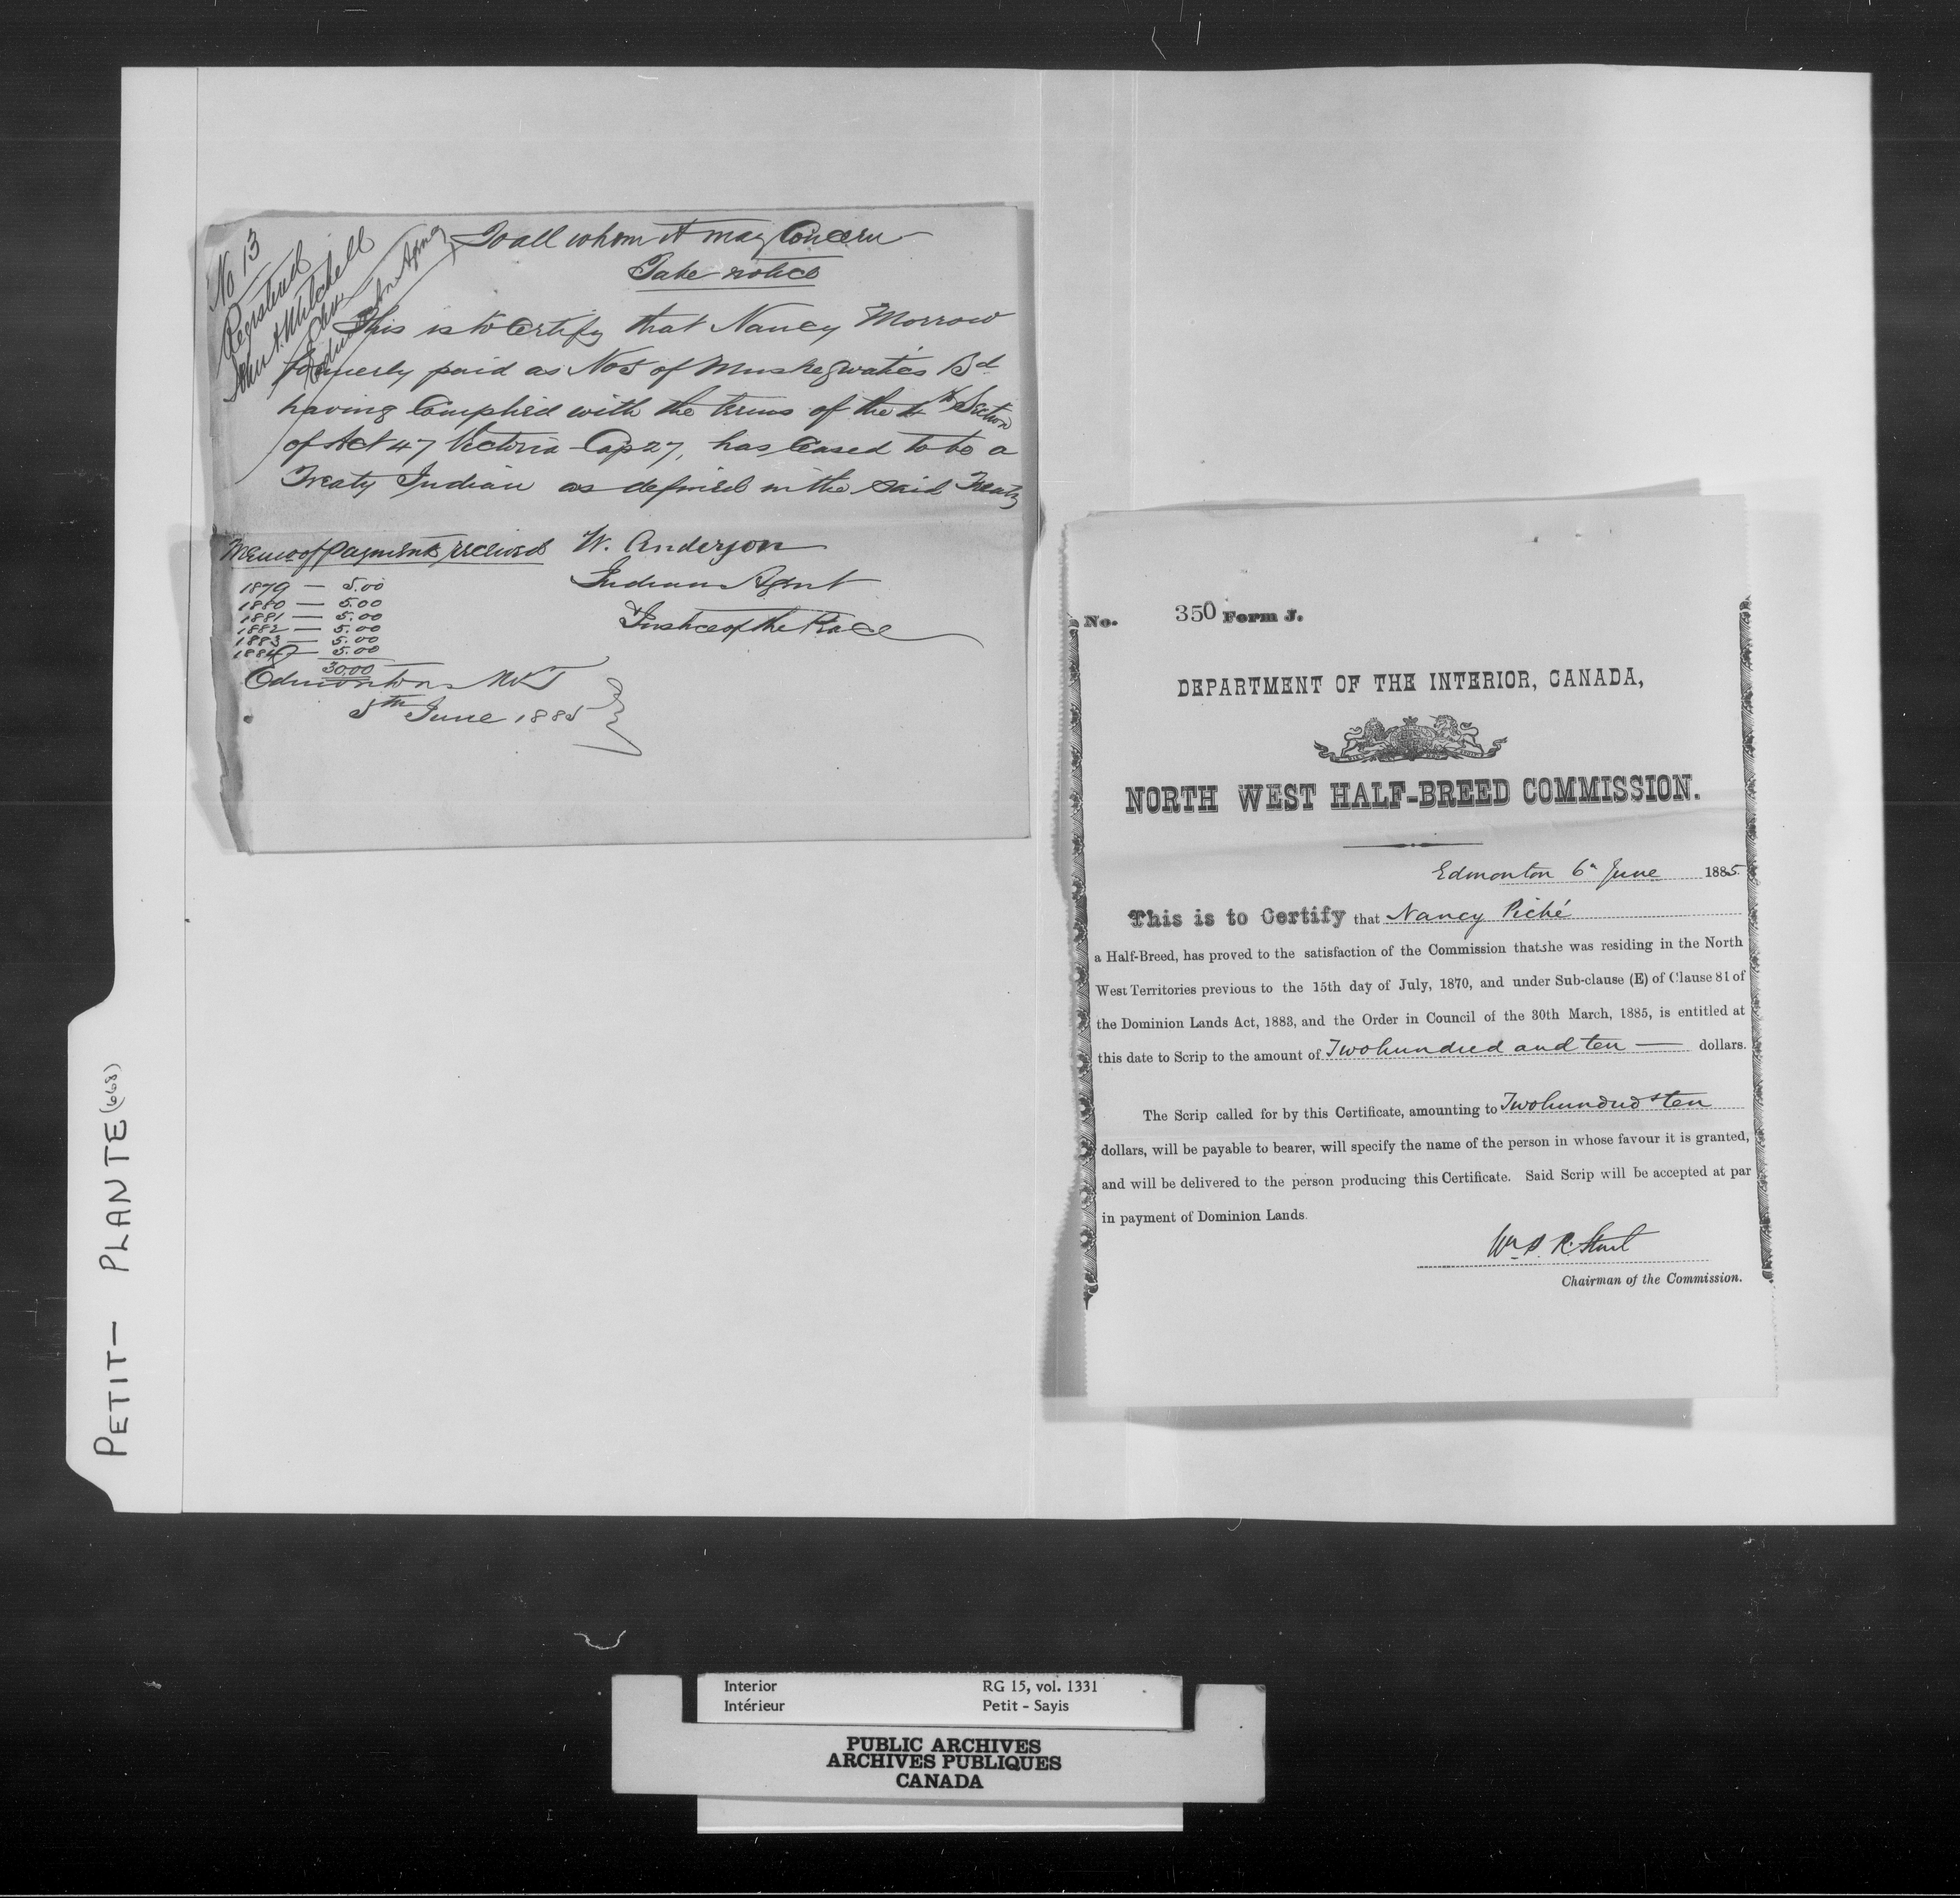 No 13
Registered
John A. Mitchell
Edmonton Agency
To all whom it may Concern
Take notice
This is to Certify that Nancy Morrow
formerly paid as No 5 of Muskegwatic's Bd
having Complied with the terms of the 4th Section
of Act 47 Victoria Cap 27, has Ceased to be a
Treaty Indian as defined in the said Treaty
Memo of payments received
1879 — 5.00
1880 — 5.00
1881 — 5.00
1882 — 5.00
1883 — 5.00
1884 — 5.00
30.00
W. Anderson
Indian Agent
Justice of the Peace
Edmonton NWT
5th June 1885
No. 350 Form J.
DEPARTMENT OF THE INTERIOR, CANADA,
NORTH WEST HALF-BREED COMMISSION.
Edmonton 6th June 1885.
This is to Certify that Nancy Piché
a Half-Breed, has proved to the satisfaction of the Commission that she was residing in the North
West Territories previous to the 15th day of July, 1870, and under Sub-clause (E) of Clause 81 of
the Dominion Lands Act, 1883, and the Order in Council of the 30th March, 1885, is entitled at
this date to Scrip to the amount of Two hundred and ten — dollars.
The Scrip called for by this Certificate, amounting to Two hundred & ten
dollars, will be payable to bearer, will specify the name of the person in whose favour it is granted,
and will be delivered to the person producing this Certificate. Said Scrip will be accepted at par
in payment of Dominion Lands.
Wm P. R. Street
Chairman of the Commission.
PETIT - PLANTE (668)
Interior RG 15, vol. 1331
Intérieur Petit - Sayis
PUBLIC ARCHIVES
ARCHIVES PUBLIQUES
CANADA